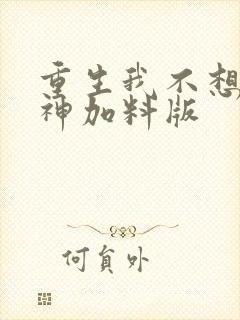 重生我不想
神加料版
何貟外